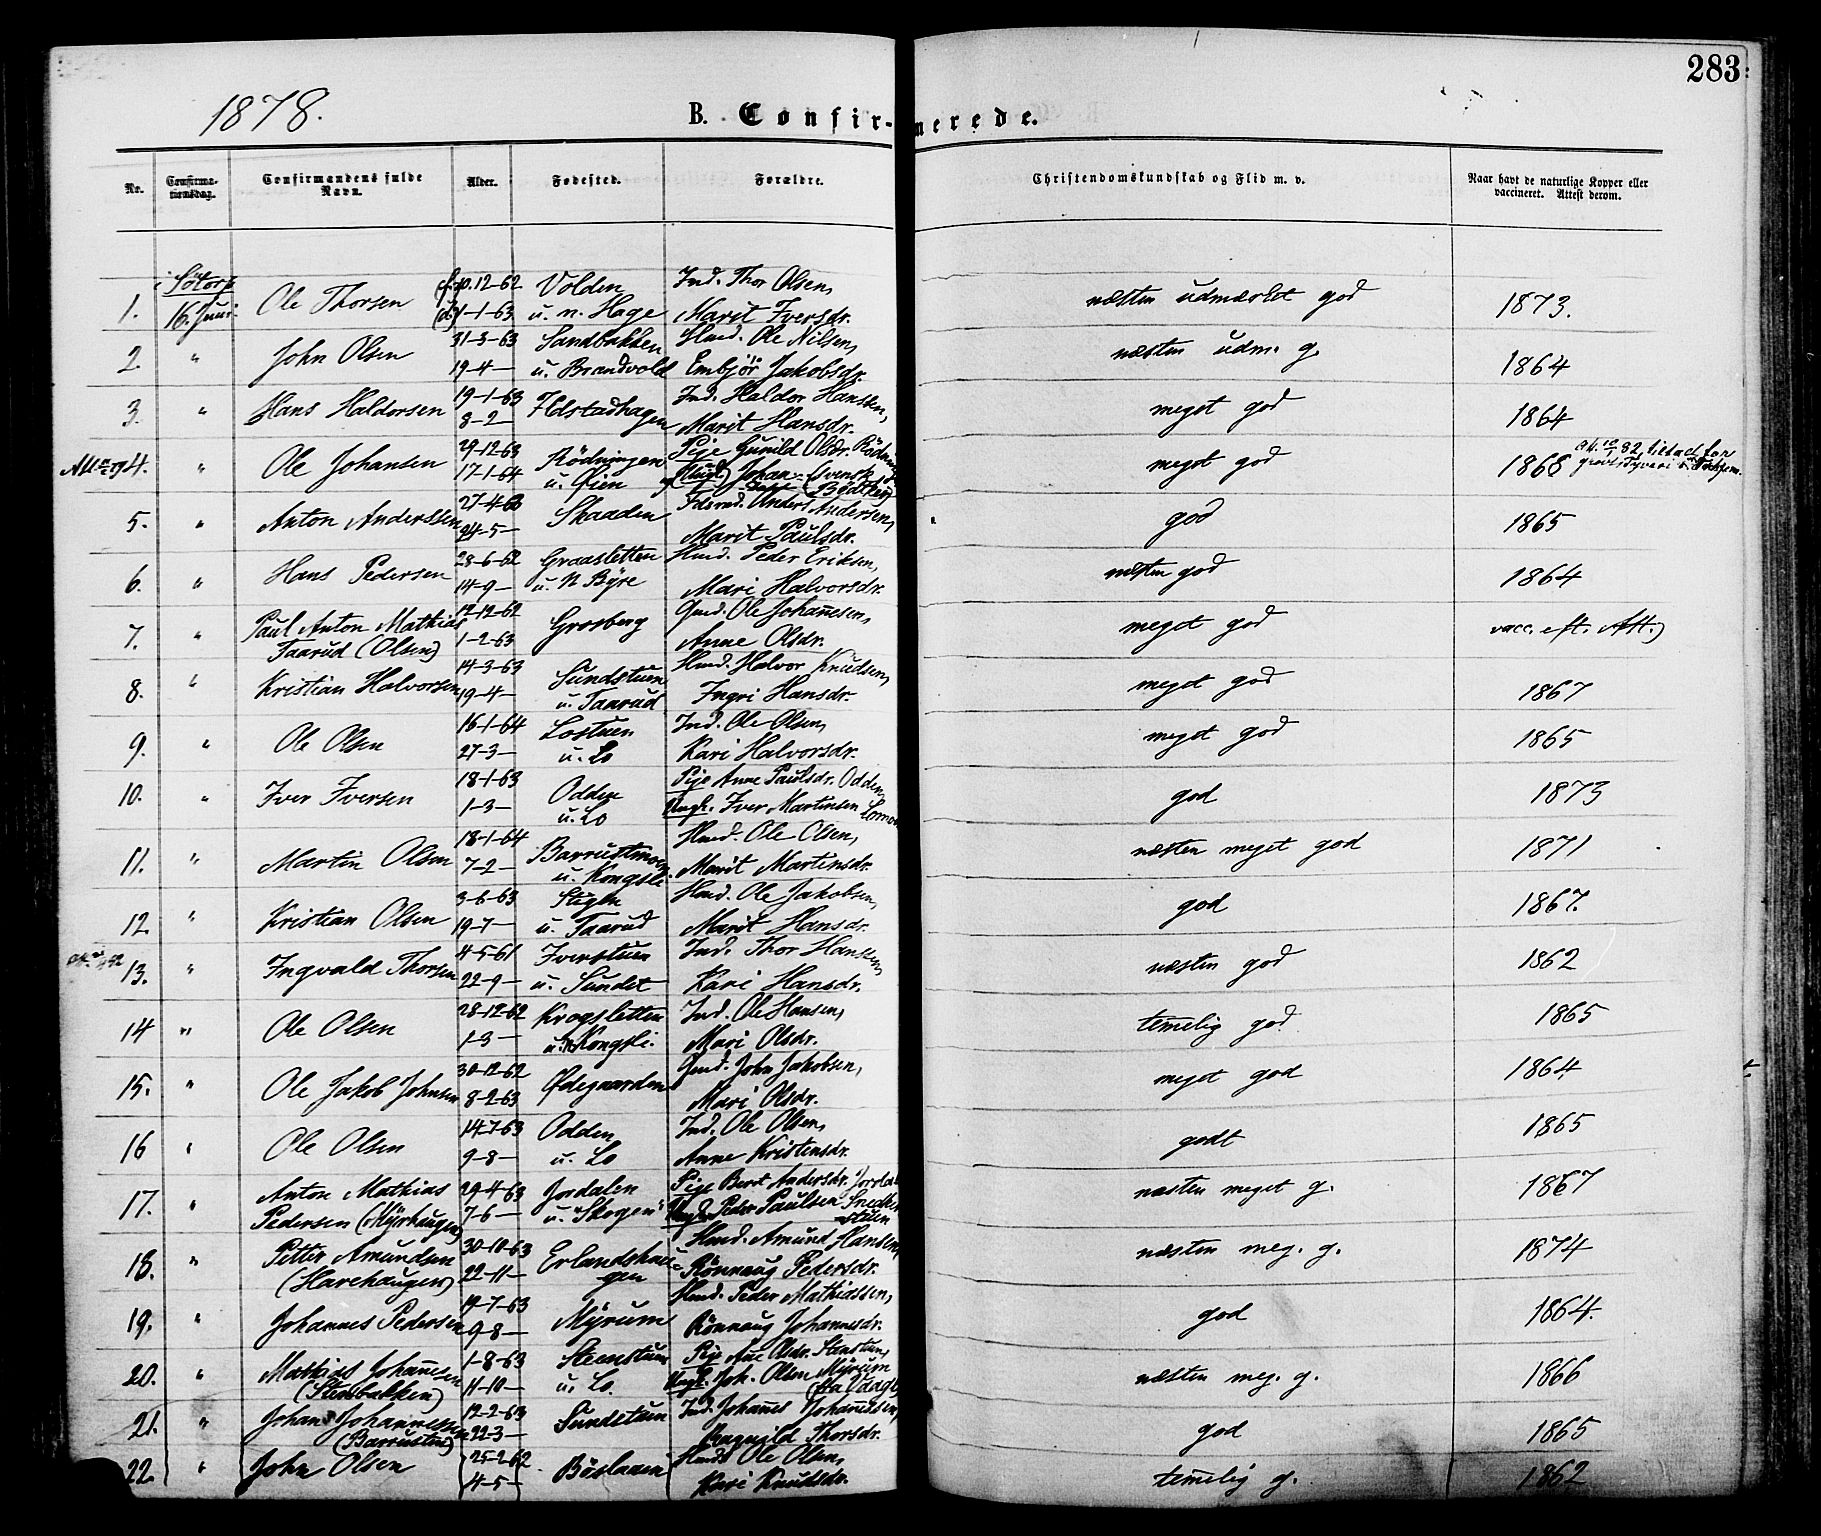 283
1878.
B. Confir-merede.
Nr.
Confirma-
tionsdag.
Confirmandens fulde
Navn.
Alder.
Fødested.
Forældre.
Christendomskundskab og Flid m. v.
Naar havt de naturlige Kopper eller
vaccineret. Attest derom.
i Sötorp 10.12-62 Volden Ind. Thor Olsen,
1. 16. Juni Ole Thorsen (d.) 1-1-63 u. n. Hage Marit Iversdr. næsten udmærket god 1873.
31-3-63 Sandbakken Hmd. Ole Nilsen,
2. " John Olsen 19-4- u. Brandvold Embjör Jakobsdr. næsten udm. g. 1864
19-1-63 Ind. Haldor Hanssen,
3. " Hans Haldorsen 8-2- Ildstadhagen Marit Hansdr. meget god 1864
29-12-63 Rödningen Pige Gunild Olsdr.
4. " Ole Johansen 17-1-64 u. Øien (Ungk.) Johan (svensk) meget god 1868
27-4-63 Anders Andersen,
5. " Anton Anderssen 24-5- Skaaden Marit Paulsdr. god 1865
28-6-62 Graasletten Hmd. Peder Eriksen,
6. " Hans Pedersen 14-9- u. N Byre Mari Halvorsdr. næsten god 1864
12-12-62 Gmd. Ole Johannesen,
7. " Paul Anton Mathias 1-2-63 Grosberg Anne Olsdr. meget god vacc. eft. Att.)
Taarud (Olsen)
14-3-63 Sundstuen Hmd. Halvor Knudsen,
8. " Kristian Halvorsen 19-4- u. Taarud Ingri Hansdr. meget god 1867
16-1-64 Lostuen Ind. Ole Olsen,
9. " Ole Olsen 27-3- u. Lo Kari Halvorsdr. meget god 1865
18-1-63 Odden Pige Anne Paulsdr. Odden,
10. " Iver Iversen 1-3- u. Lo Ungk. Iver Martinsen god 1873
18-1-64 Barrustmoen Hmd. Ole Olsen,
11. " Martin Olsen 7-2- u. Kongsli Marit Martinsdr. næsten meget god 1871
3-6-63 Stigen Hmd. Ole Jakobsen,
12. " Kristian Olsen 19-7- u. Taarud Marit Hansdr. god 1867.
4-5-61 Iverstuen Ind. Thor Hansen,
13. " Ingvald Thorsen 22-9- u. Sundet Kari Hansdr. næsten god 1862
28-12-62 Krogsletten Ind. Ole Hansen,
14 " Ole Olsen 1-3- u. Kongsli. Mari Olsdr. temelig god 1865
30-12-62 Gmd. John Jakobsen,
15. " Ole Jakob Johnsen 8-2-63 Ødegaarden Mari Olsdr. meget god 1864
14-7-63 Odden Ind. Ole Olsen,
16 " Ole Olsen 9-8- u. Lo Anne Kristensdr. godt 1865
Anton Mathias 29-4-63 Jordalen Pige Berit Andersdr.
17. " Pedersen (Myrhaugen) 7-6- u. "Skogen" Ungk. Peder Paulsen næsten meget g. 1867
Petter Amundsen 30-10-63 Hmd. Amund Hansen,
18. " (Harehaugen) 22-11- Erlandshau-
gen Rönnaug Pedersdr. næsten meg. g. 1874
19-7-63 Hmd. Peder Mathiassen,
19. " Johannes Pedersen 9-8- Myrum Rönnaug Johannesdr. god 1864.
Mathias Johannesen 1-8-63 Steenstuen Pige Ane Olsdr. Stenstuen,
20. " (Stenbakken) 11-10- u. Lo. Ungk. Joh. Olsen Myrum næsten meg. g. 1866
Johan Johannessen 12-2-63 Ind. Johannes Johannessen,
21. " (Barrusten) 22-3- Sundstuen Ragnild Thorsdr. god 1865
25-2-62 Ole Olsen,
22. " John Olsen 4-5- Kari Knudsdr. temelig g. 1862